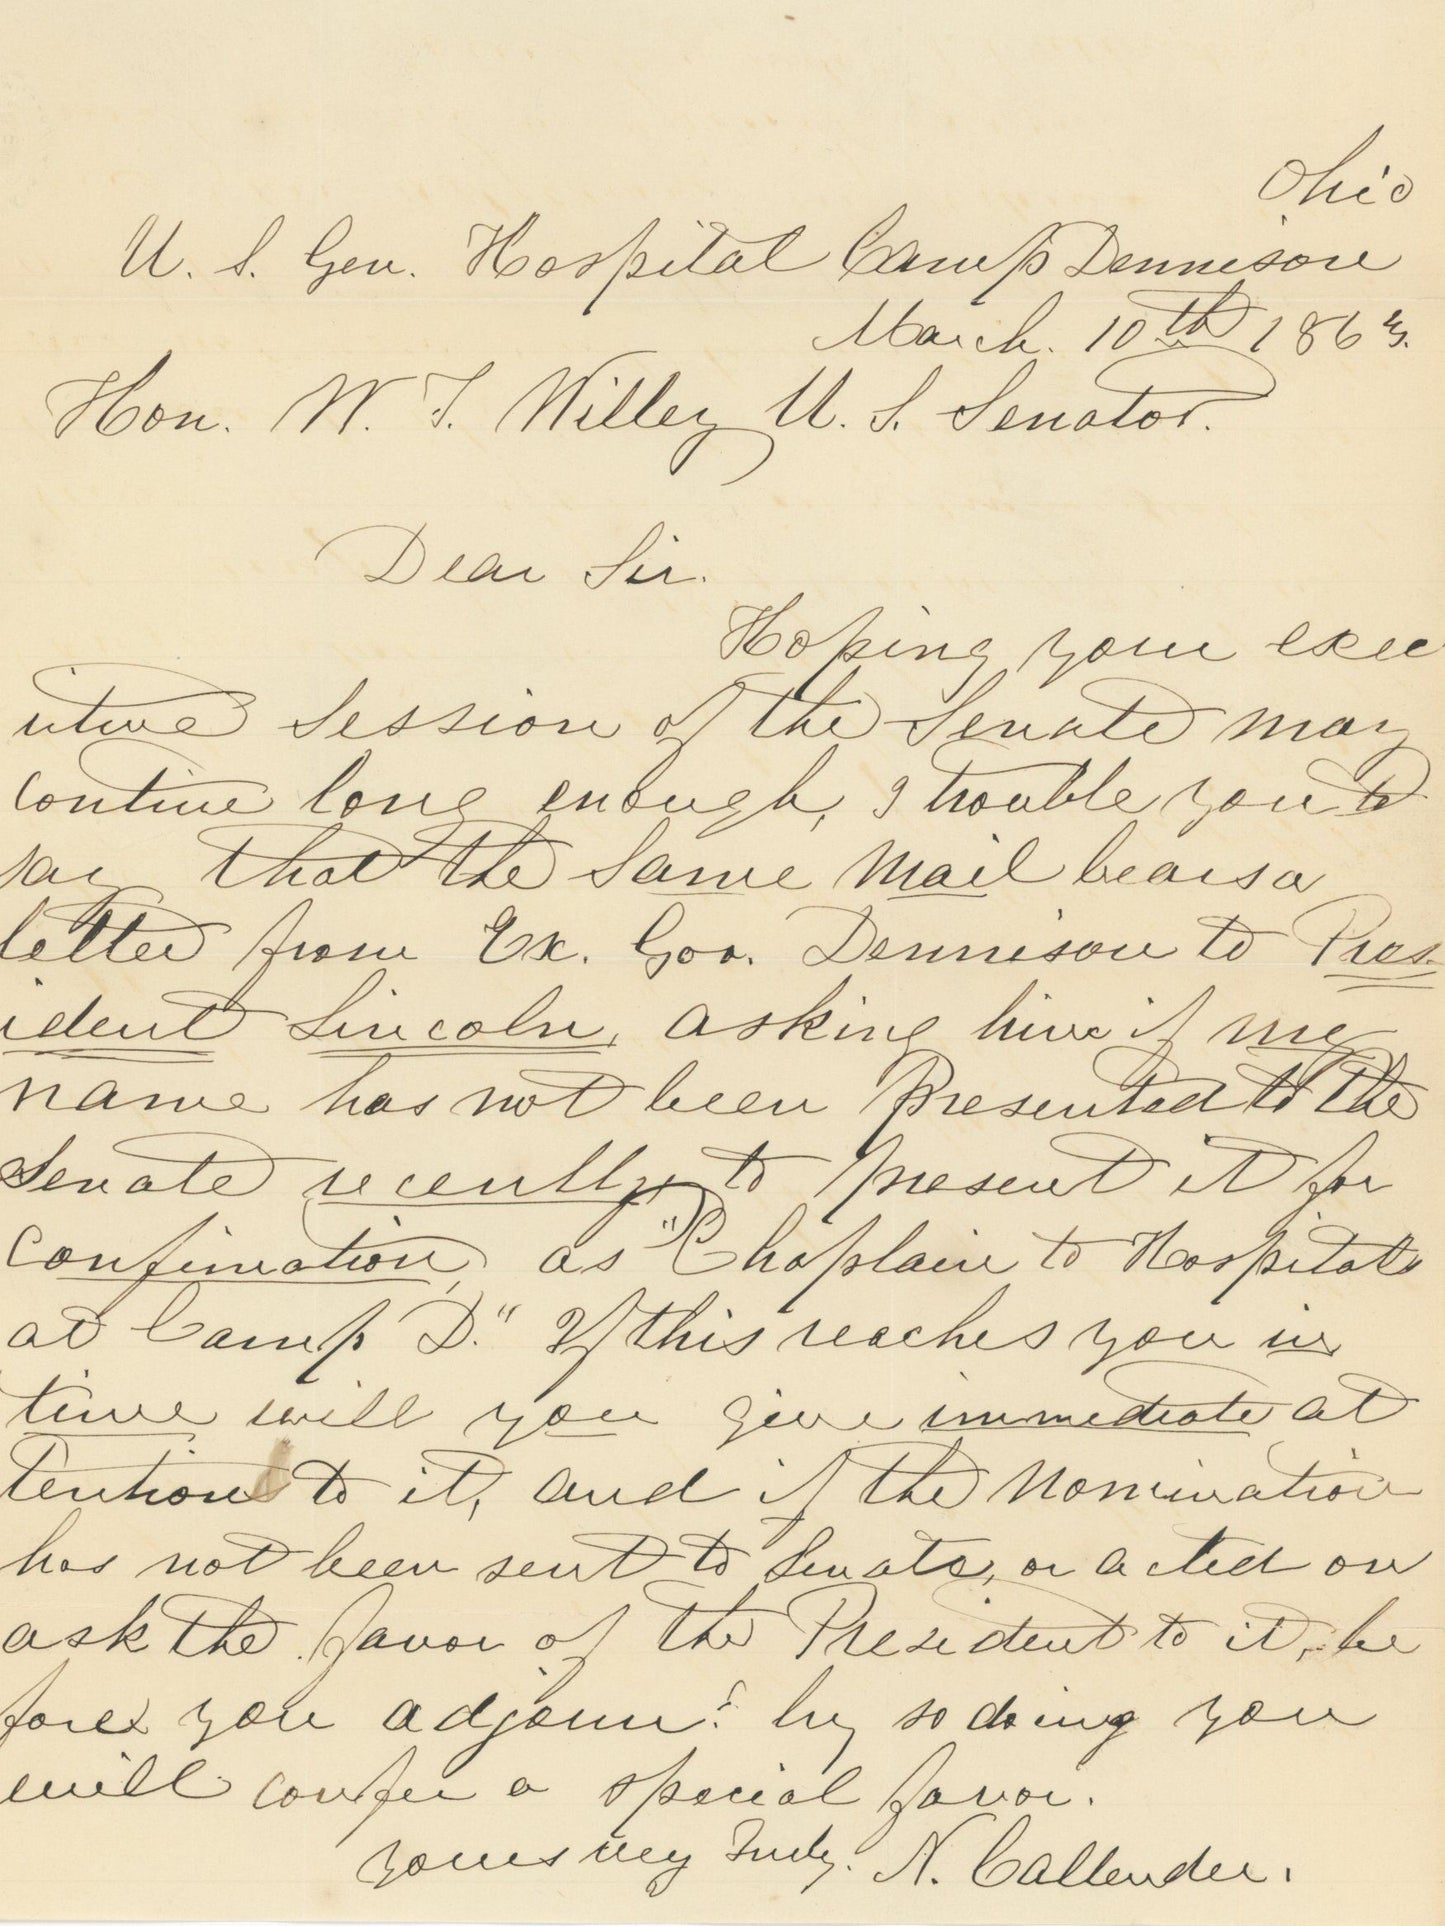 Ohio
U. S. Gen. Hospital Camp Dennison
March. 10th 1863.
Hon. W. T. Willey U. S. Senator.
Dear Sir.
Hoping your exec
utive Session of the Senate may
continue long enough, I trouble you to
say that the same Mail bears a
letter from Ex. Gov. Dennison to Pres-
ident Lincoln, asking him if my
name has not been Presented to the
Senate recently to present it for
Confirmation, as "Chaplain to Hospitals
at Camp D." If this reaches you in
time will you give immediate at
tention to it, and if the Nomination
has not been sent to Senate, or acted on
ask the favor of the President to it, be
fore you adjourn? by so doing you
will confer a special favor.
yours very Truly. N. Callender.